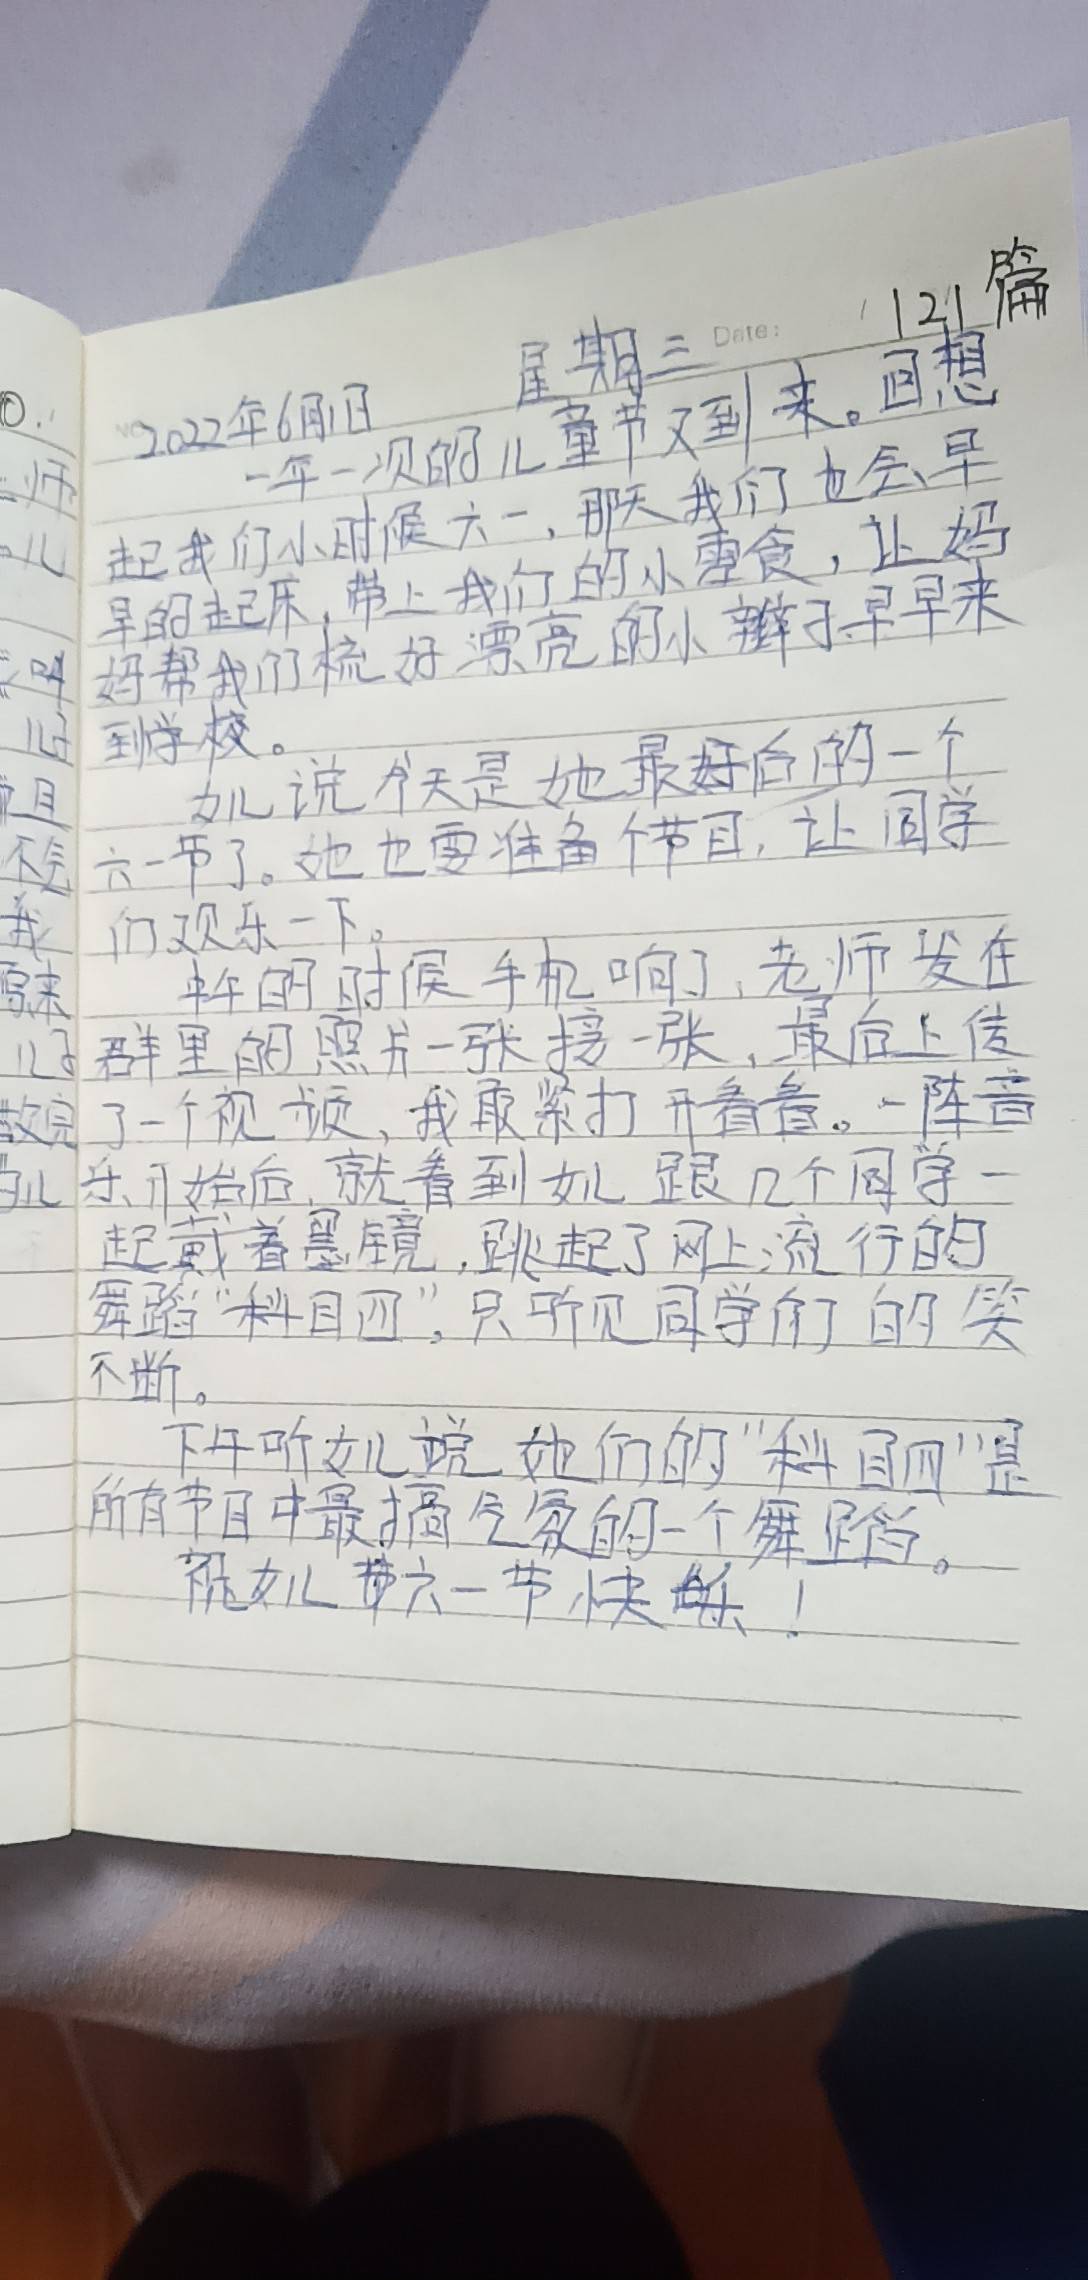 121篇
Date:
2022年6月1日 星期三
一年一次的儿童节又到来。回想
起我们小时候六一，那天我们也会早
早的起床，带上我们的小零食，让妈
妈帮我们梳好漂亮的小辫子早早来
到学校。
女儿说今天是她最后的一个
六一节了。她也要准备个节目，让同学
们欢乐一下。
中午的时候手机响了，老师发在
群里的照片一张接一张，最后上传
了一个视频，我敢紧打开看看。一阵音
乐开始后，就看到女儿跟几个同学一
起戴着墨镜，跳起了网上流行的
舞蹈“科目四”，只听见同学们的笑
不断。
下午听女儿说她们的“科目四”是
所有节目中最搞气氛的一个舞蹈。
祝女儿六一节快乐！
师
儿
叫
儿子
且
不会
我
来
儿子
儿